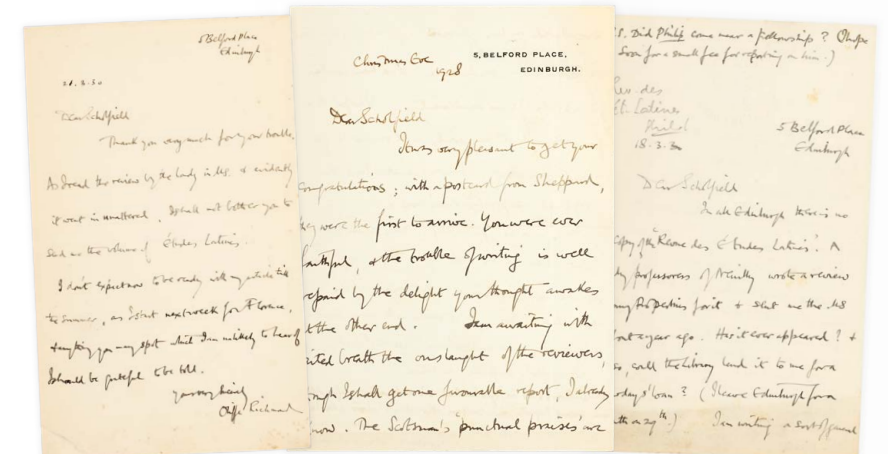 5 Belford Place
Edinburgh
21.3.30
Dear Scholfield
Thank you very much for your trouble.
As I read the review by the lady in MS. & evidently
it went in unaltered, I shall not bother you to
send me the volume of Études Latines.
I don't expect now to be ready with my articles till
the summer, as I start next week for Florence,
& anything you may spot which I am unlikely to hear of
I should be grateful to be told.
yours very sincerely
Christmas Eve
1928
5, BELFORD PLACE,
EDINBURGH.
Dear Scholfield
It was very pleasant to get your
congratulations; with a postcard from Sheppard,
they were the first to arrive. You were ever
faithful, & the trouble of writing is well
repaid by the delight your thought awakes
at the other end. I am awaiting with
bated breath the onslaught of the reviewers,
though I shall get one favourable report, I already
know. The Scotsman's 'punctual praises' are
S. Did Philip come near a Fellowship? (I hope
soon for a small fee for reporting on him.)
Rev. des
Et. Latines
18.3.30
5 Belford Place
Edinburgh
Dear Scholfield
In all Edinburgh there is no
copy of the "Revue des Études Latines". A
lady professoress of wrote a review
my Propertius for it & sent me the MS
about a year ago. Has it ever appeared? &
so, could the Library lend it to me for a
days' loan? (I leave Edinburgh for a
on 29th.) I am writing a sort of general